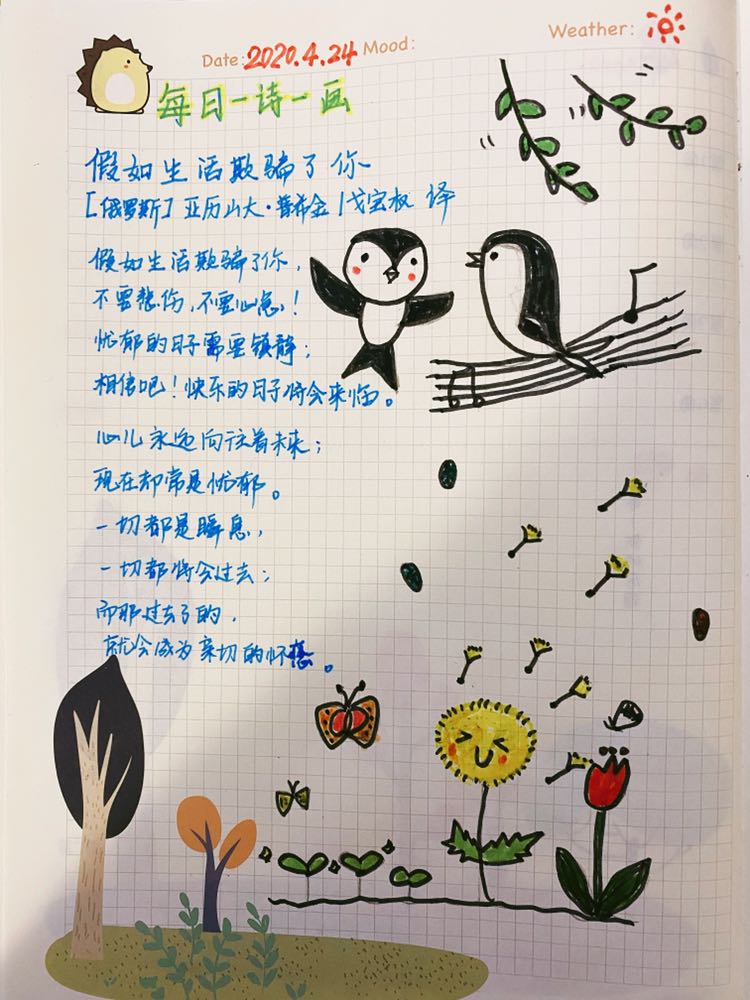 Date: 2020.4.24 Mood: Weather:
每日一诗一画
假如生活欺骗了你
[俄罗斯] 亚历山大·普希金 / 戈宝权 译
假如生活欺骗了你，
不要悲伤，不要心急！
忧郁的日子需要镇静；
相信吧！快乐的日子将会来临。
心儿永远向往着未来；
现在却常是忧郁。
一切都是瞬息，
一切都将会过去；
而那过去了的，
就会成为亲切的怀恋。